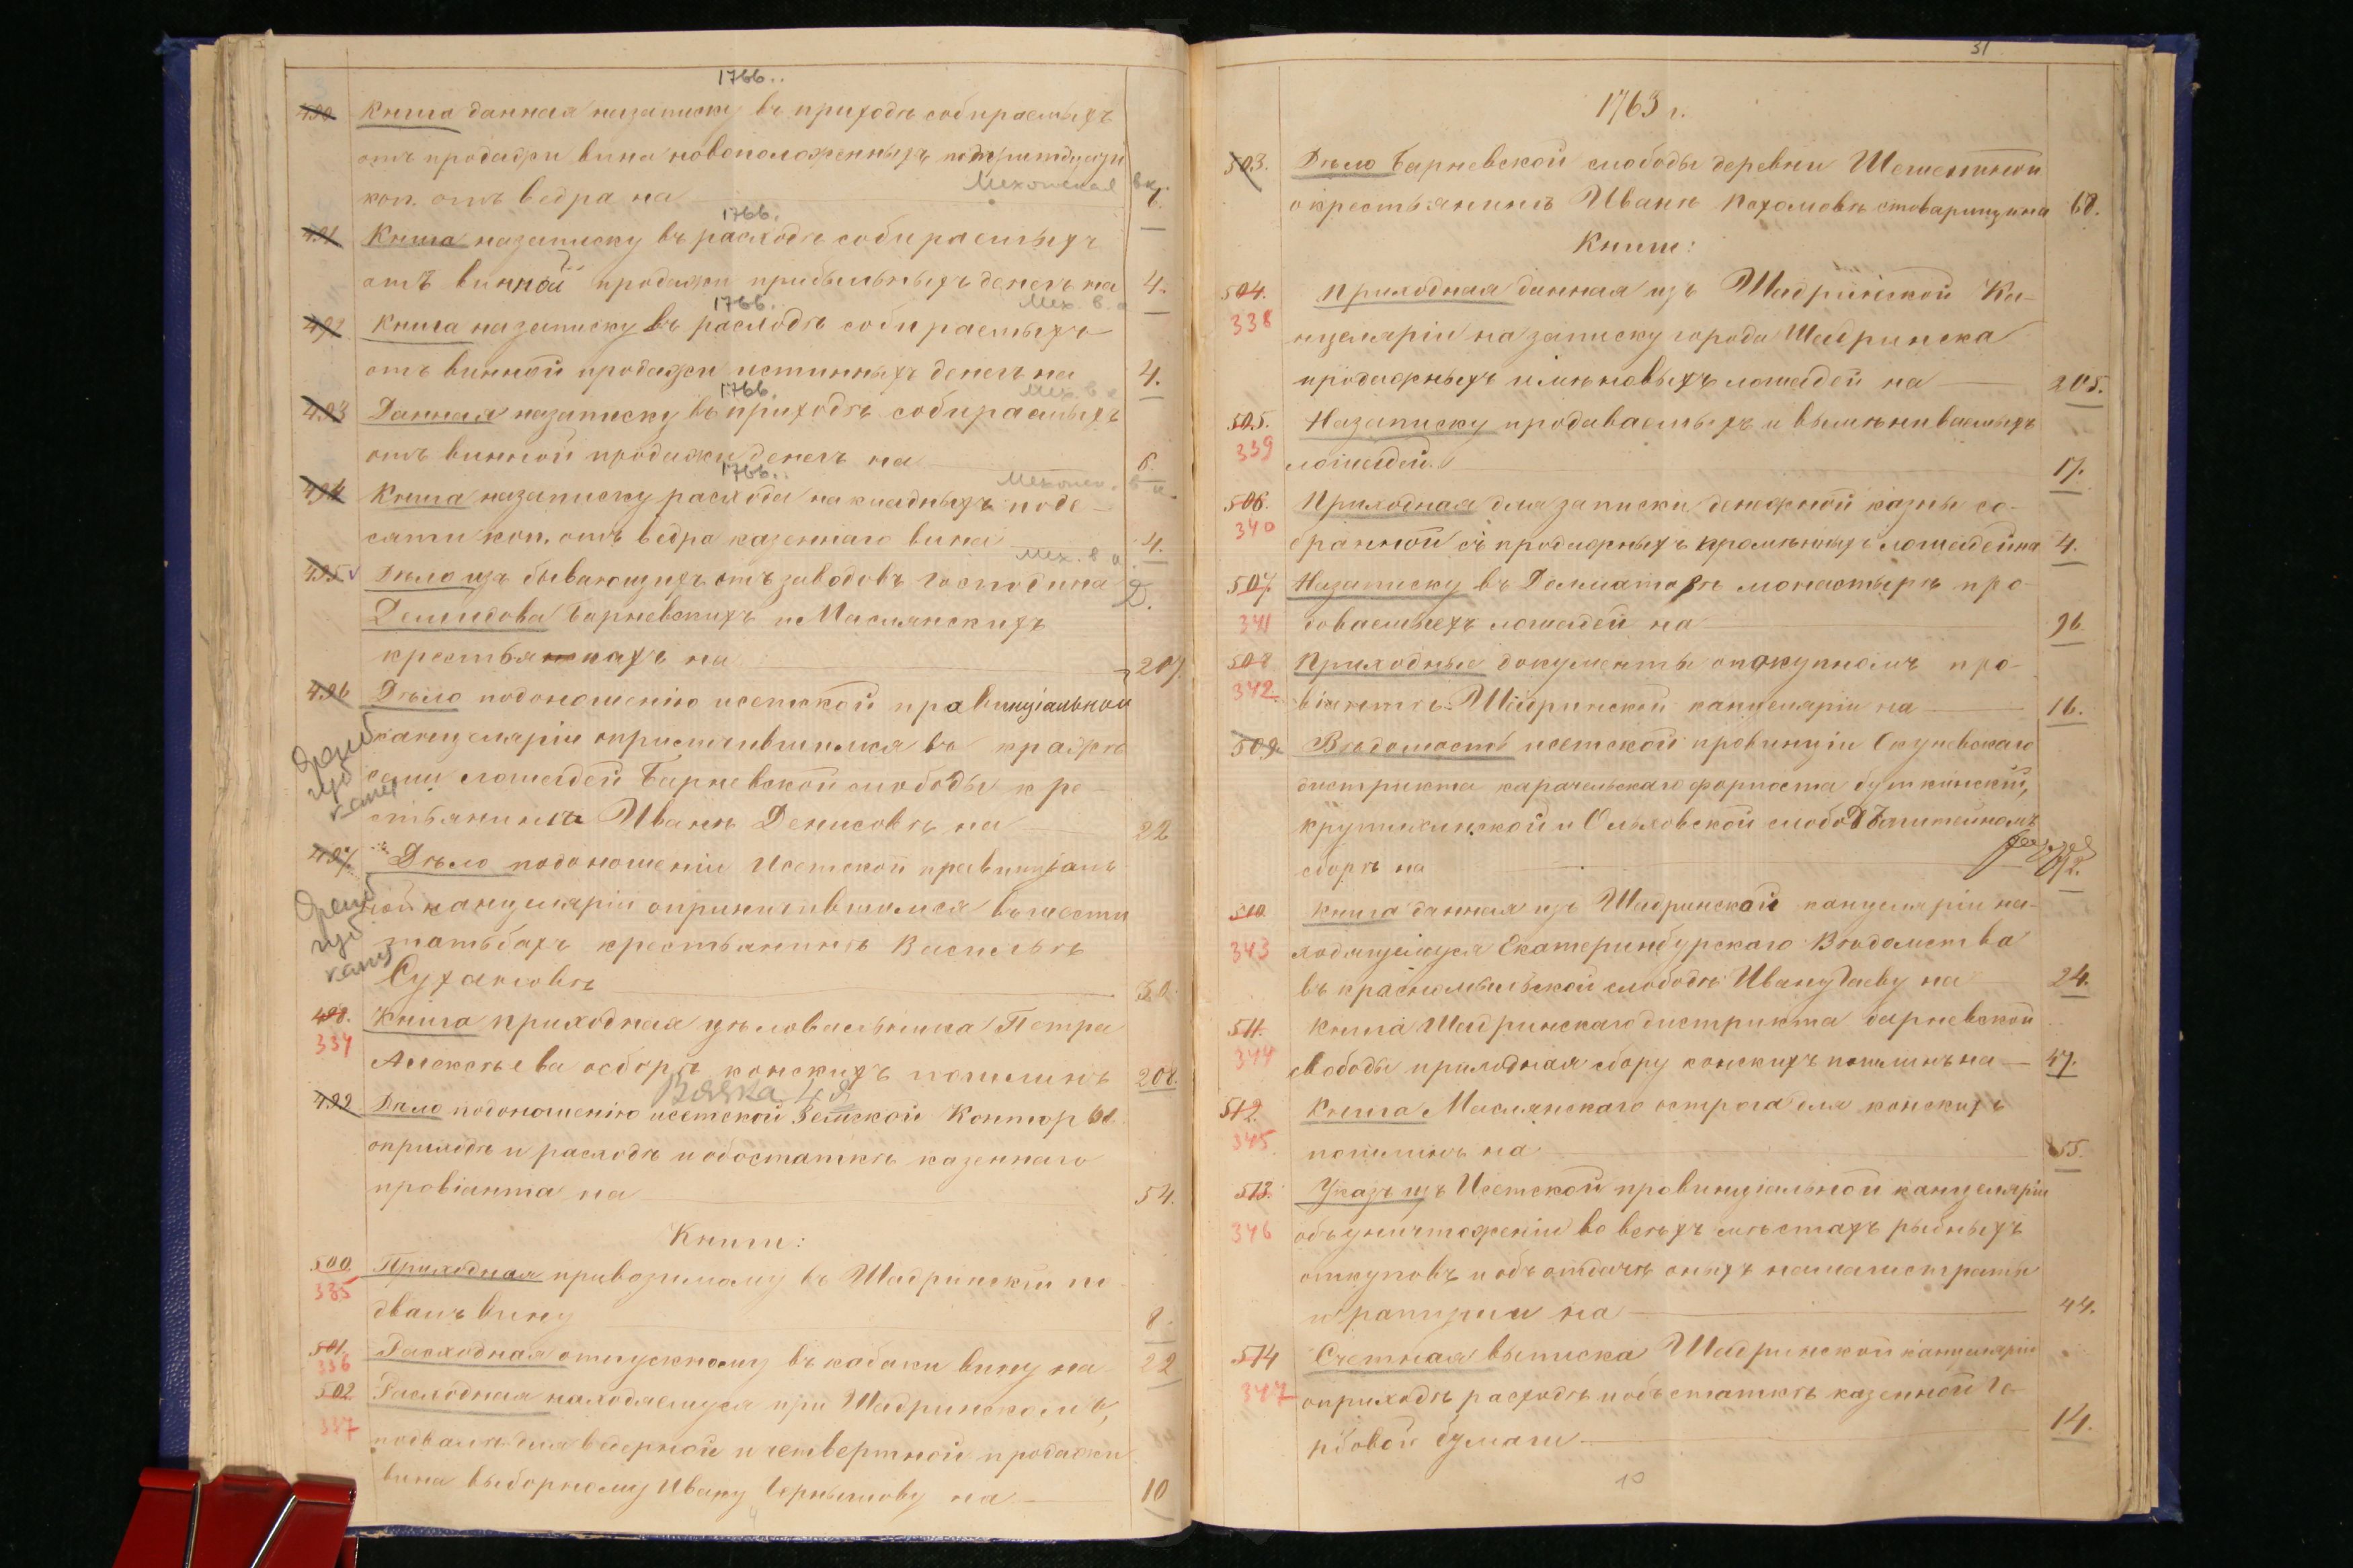 1766..
490 Книга данная назаписку въ приходъ собираемыхъ
отъ продажи вина новоположенныхъ по тритцати
коп. отъ ведра на
1766.
491 Книга назаписку въ расходъ собираемыхъ
отъ винной продажи прибыльныхъ денегъ на 4.
Мех. в.
1766.
492 Книга назаписку въ расходъ собираемыхъ
отъ винной продажи истинныхъ денегъ на 4.
Мех. в
1766.
493 Данная назаписку въ приходъ собираемыхъ
отъ винной продажи денегъ на 6.
1766..
494 Книга назаписку расхода накладныхъ поде-
сяти коп. отъ ведра казеннаго вина 4.
Мех. в
495 Дѣло изъ бывающихъ отъ заводовъ Господина
Демидова Барневскихъ и Маслянскихъ
крестьянахъ на 207.
496 Дѣло подоношенію исетской правинціальной
канцеляріи
семи лошадей Барневской слободы кре-
стьянинѣ Иванѣ Денисовѣ на 22
497 Дѣло подоношеніи Исетской правинціаль
ной канцеляріи опричинившимся въ шести
татьбахъ крестьянинѣ Васильѣ
Сухановѣ 30.
498. Книга приходная цѣловальника Петра
334
Алексѣева осборѣ конскихъ пошлинъ 208.
499 Дѣло подоношенію исетской Земской Конторы
оприходѣ и расходѣ и обостаткѣ казеннаго
провіанта на 54.
Книги:
500 Приходная привозимому въ Шадринскій по
335
двалъ вину 8.
501. Расходная отпускному въ кабаки вину на 22
336
502 Расходная находящемуся при Шадринскомъ,
337
подвалѣ для ведерной и четвертной продажи
вина выборному Ивану Чернышову на 10
31
1763 г.
503. Дѣло Барневской слободы деревни
о крестьянинѣ Иванѣ Пахомовѣ стоварищи на 68.
Книги:
504. Приходная данная изъ Шадринской Ка-
338
нцеляріи на записку города Шадринска
продажныхъ имѣновыхъ лошадей на 205.
505. Назаписку продаваемыхъ и вымѣниваемыхъ
339
лошадей. 17.
506. Приходная для записки денежной казны со-
340
бранной съ продажныхъ промѣнныхъ лошадей на 4.
507. Назаписку въ Далматовѣ монастырѣ про-
341
доваемыхъ лошадей на 96.
508 Приходные документы опокупномъ про-
342.
віянтѣ Шадринской канцеляріи на 16.
509. Вѣдомость исетской провинціи Окуневскаго
дистрикта карачельскаго форпоста буткинской,
крутихинской и Ольховской слободъ питейномъ
сборѣ на
510 Книга данная изъ Шадринской канцеляріи на-
343
ходящемуся Екатеринбурскаго Вѣдомства
въ красномыльской слободѣ Ивану Гаеву на 24.
511. Книга Шадринскаго дистрикта барневской
344
слободы приходная сбору конскихъ пошлинъ на 47.
512. Книга Маслянскаго острога для конскихъ
345
пошлинъ на 55.
513. Указъ изъ Исетской провинціальной канцеляріи
346
объ уничтоженіи во всѣхъ мѣстахъ рыбныхъ
откуповъ и объ отдачѣ оныхъ на магистраты
и ратуши на 44.
514 Счетная выписка Шадринской канцеляріи
347
оприходѣ расходѣ и объ статкѣ казенной Ге-
рбовой бумаги 14.
10